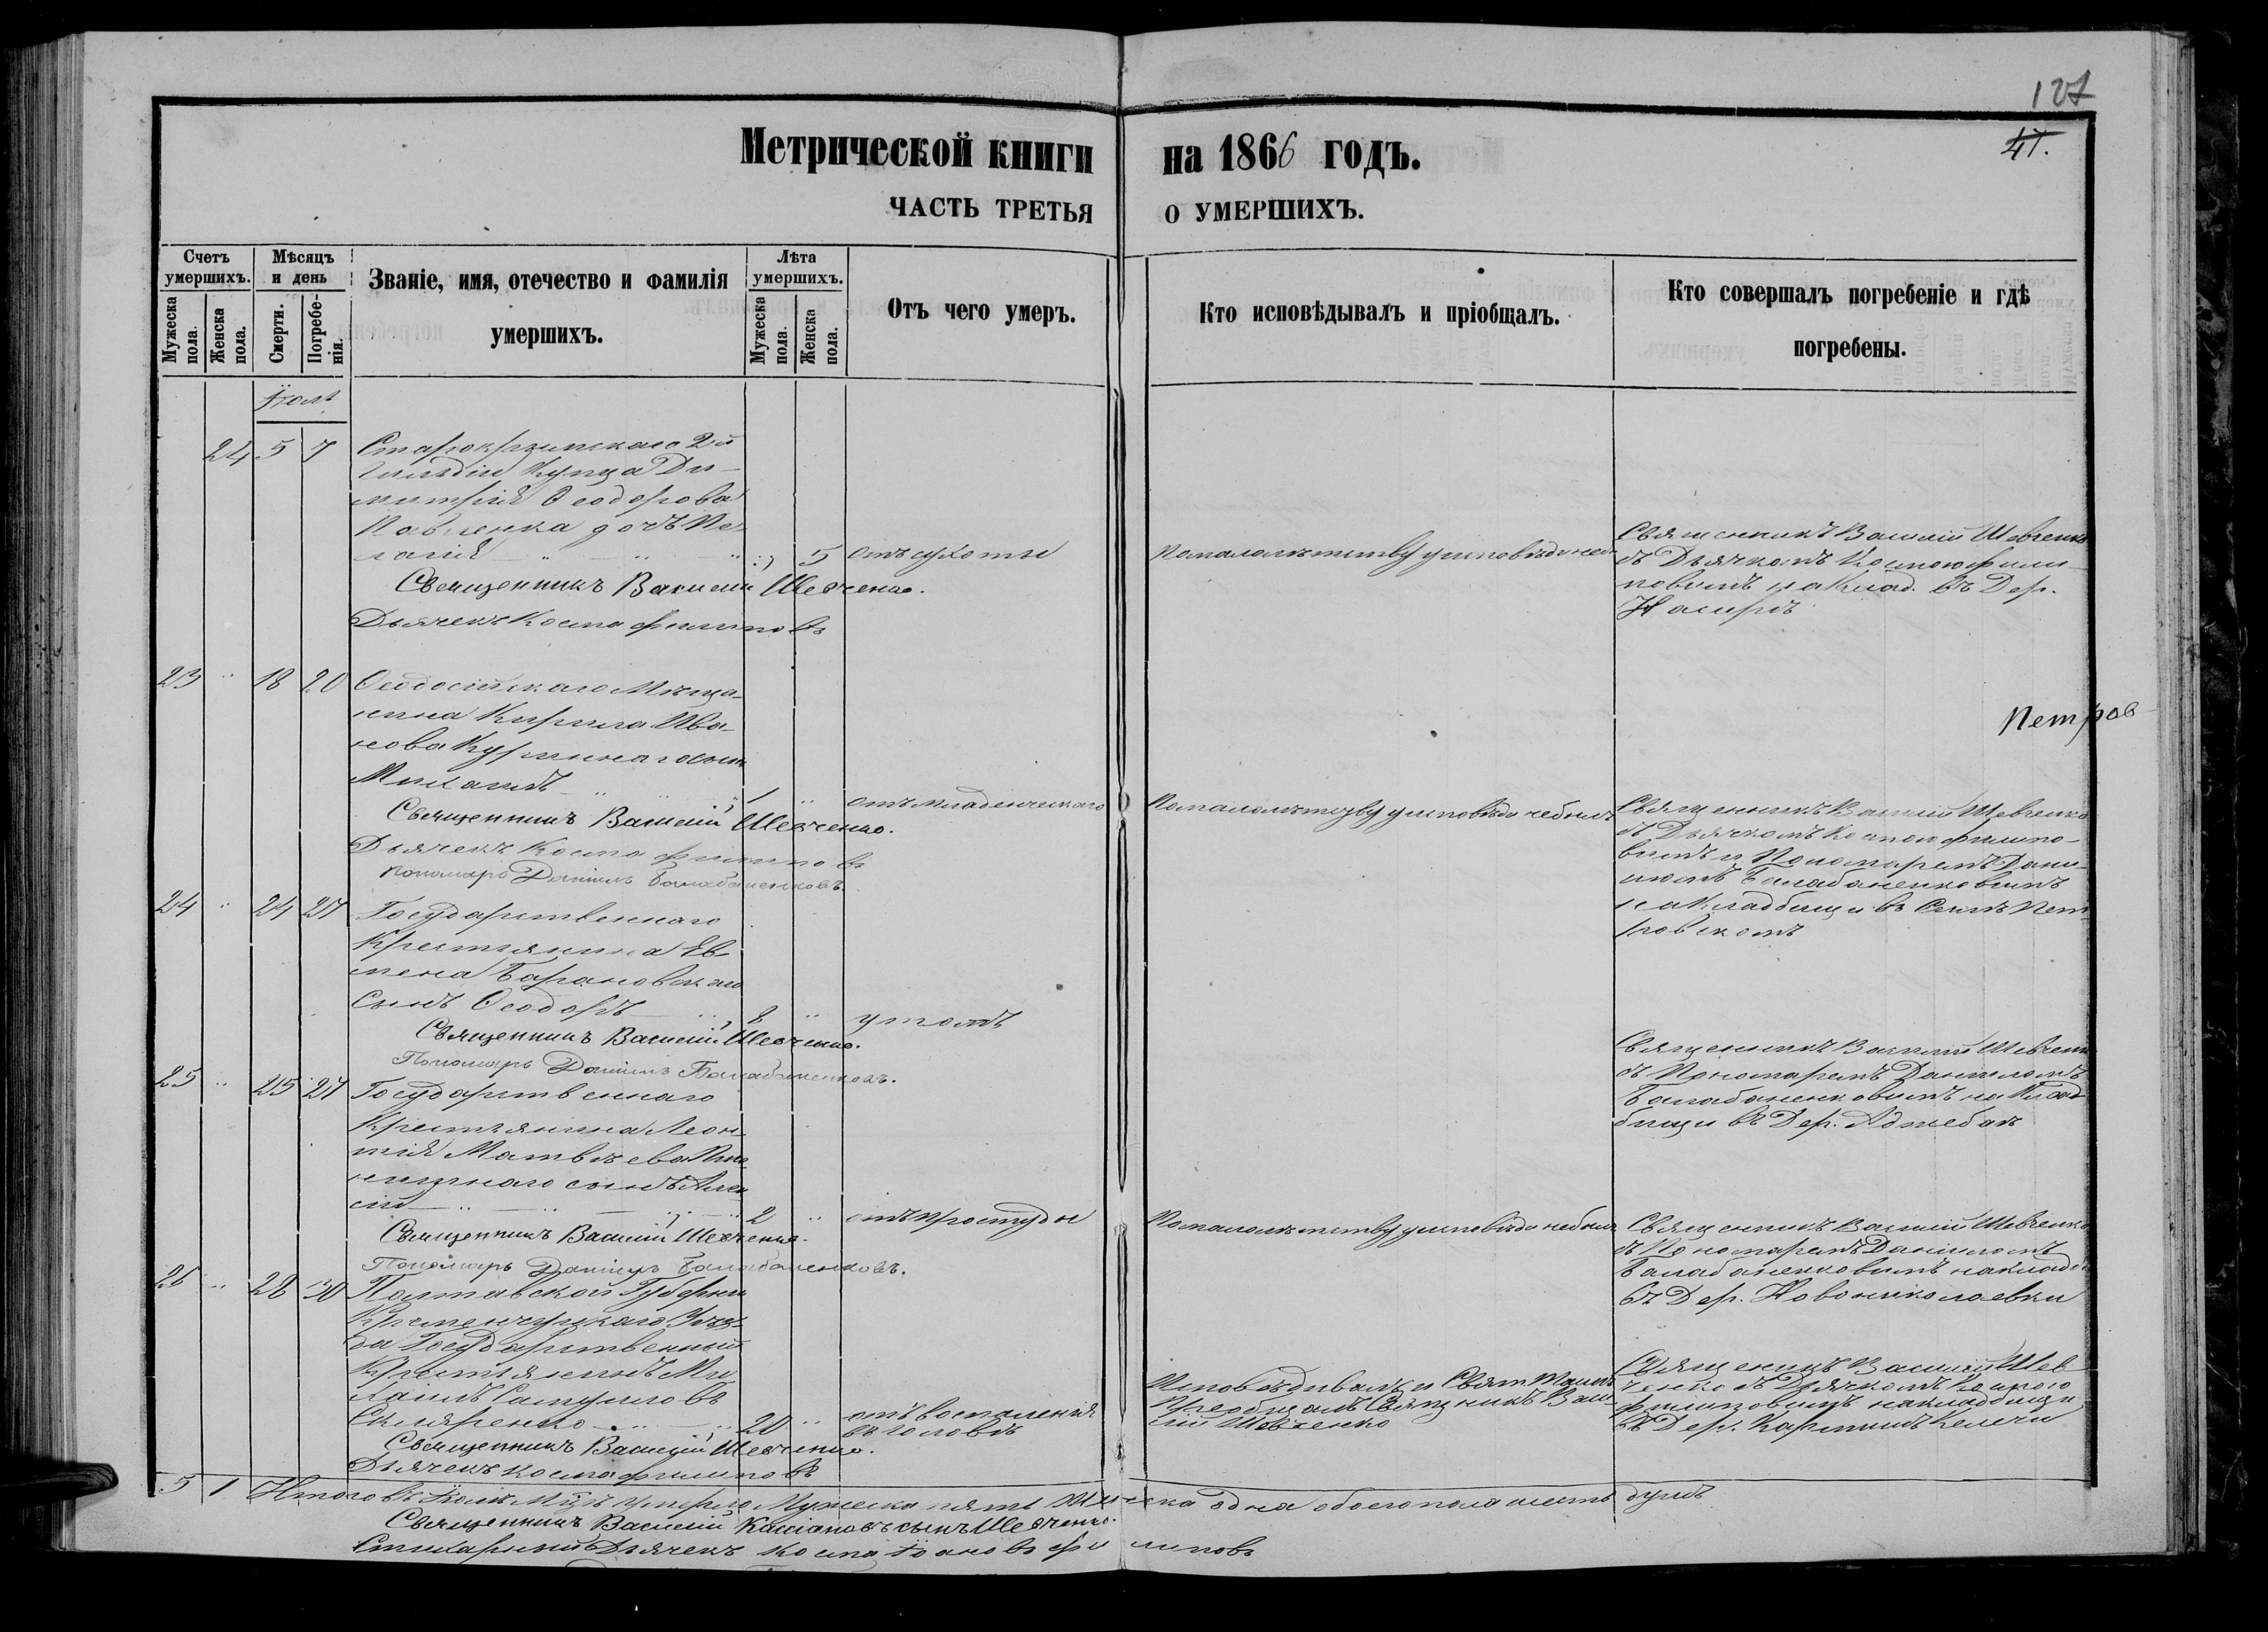 127
41.
Метрической книги на 1866 годъ.
ЧАСТЬ ТРЕТЬЯ О УМЕРШИХЪ.
Счетъ умершихъ.
Мужеска пола.
Женска пола.
Мѣсяцъ и день
Смерти.
Погребенія.
Званіе, имя, отечество и фамилія умершихъ.
Лѣта умершихъ.
Мужеска пола.
Женска пола.
Отъ чего умеръ.
Кто исповѣдывалъ и пріобщалъ.
Кто совершалъ погребеніе и гдѣ погребены.
24 5 7
Старокрымскаго 2й
Гильдіи Купца Ди-
митрія Ѳеодорова
Павленка дочь Пе-
лагія 5 отъ сухоты
Священникъ Василій Шевченко.
Дьячекъ Косма Филиповъ
По малолѣтству у исповѣди не
Священникъ Василій Шевченко
съ Дьячкомъ Космою Фили-
повымъ на Клад. въ Дер.
Насырѣ
23 " 18 20
Ѳеодосійскаго Мѣща-
нина Кирила Ива-
нова сынъ
Михаилъ 1 " отъ младенческаго
Священникъ Василій Шевченко.
Дьячекъ Косма Филиповъ
Пономарь Даніилъ Балабаненковъ.
По малолѣтству у исповѣди не былъ
Петров
Священникъ Василій Шевченко
съ Дьячкомъ Космою Филипо-
вымъ и Пономаремъ Дани-
иломъ Балабаненковымъ
на Кладбищи въ Селѣ Пет-
ровскомъ
24 " 24 27
Государственнаго
Крестьянина Ев-
мена Барановскаго
Сынъ Ѳеодоръ 8 " утопъ
Священникъ Василій Шевченко.
Пономарь Даніилъ Балабаненковъ.
Священникъ Василій Шевченко
съ Пономаремъ Даніиломъ
Балабаненковымъ на Клад-
бищи въ Дер. Аджебай
25 " 25 27
Государственнаго
Крестьянина Леон-
тія Матвѣева
сынъ Алек
сій 2 " отъ простуды
Священникъ Василій Шевченко.
Пономарь Даніилъ Балабаненковъ.
По малолѣтству у исповѣди не былъ
Священникъ Василій Шевченко
съ Пономаремъ Даніиломъ
Балабаненковымъ на кладб
въ Дер. Новониколаевки
26 " 28 30
Полтавской Губерніи
Кременчугскаго Уѣз-
да Государственный
Крестьянинъ Ми-
хаилъ
Скляренко 20 " отъ воспаленія
въ головѣ
Священникъ Василій Шевченко.
Дьячекъ Косма Филиповъ
Исповѣдывалъ и Свят. Тайнъ
пріобщалъ Священникъ Васи-
лій Шевченко
Священникъ Василій Шев-
ченко съ Дьячкомъ Космою
Филиповымъ на кладбищи
въ Дер. Келечи
5 1 Итого въ Іюлѣ М-цѣ умерло Мужеска пять Женска одна обоего пола шесть душъ
Священникъ Василій Кассіановъ сынъ Шевченко.
Стихарный Дьячекъ Косма Іоановъ Филиповъ